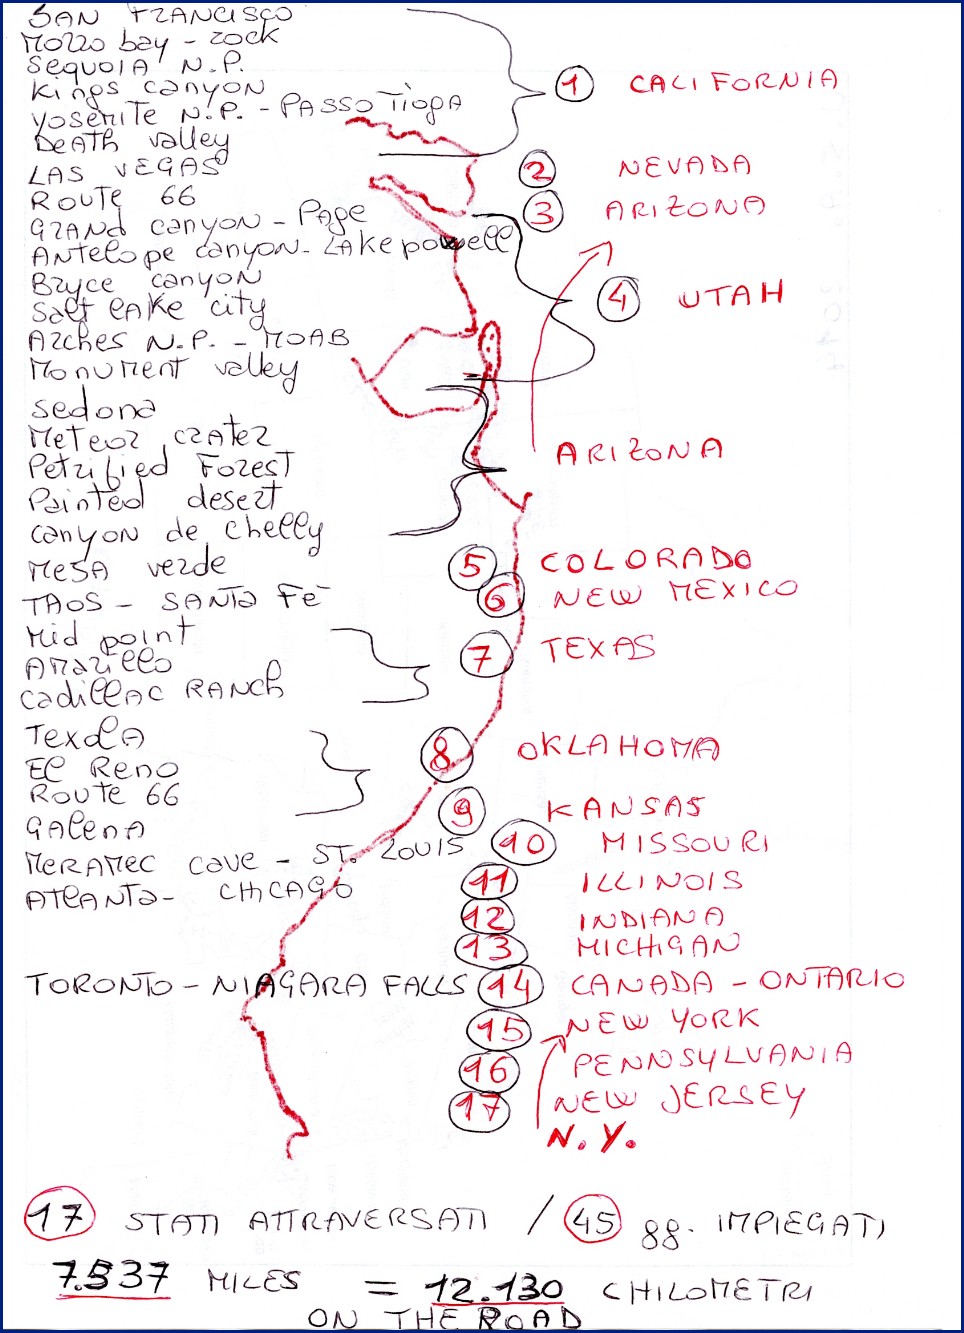 SAN FRANCISCO
Morro bay - rock
Sequoia N.P.
Kings canyon
Yosemite N.P. - PASSO Tioga
Death valley
① CALIFORNIA
LAS VEGAS
② NEVADA
ROUTE 66
③ ARIZONA
GRAND canyon - Page
Antelope canyon - LAKE powell
Bryce canyon
④ UTAH
Salt lake city
Arches N.P. - MOAB
Monument valley
Sedona
Meteor crater
ARIZONA
Petrified Forest
Painted desert
canyon de chelly
Mesa verde
⑤ COLORADO
TAOS - SANTA FÈ
⑥ NEW MEXICO
Mid point
Amarillo
Cadillac RANch
⑦ TEXAS
TexolA
El Reno
Route 66
⑧ OKLAHOMA
Galena
⑨ KANSAS
MERAMEC cave - ST. LOUIS
⑩ MISSOURI
ATlANTA - CHICAGO
⑪ ILLINOIS
⑫ INDIANA
⑬ MICHIGAN
TORONTO - NIAGARA FALLS ⑭ CANADA - ONTARIO
⑮ NEW YORK
⑯ PENNSYLVANIA
⑰ NEW JERSEY
N.Y.
17 STATI ATTRAVERSATI / 45 gg. IMPIEGATI
7.537 MILES = 12.130 CHILOMETRI
ON THE ROAD